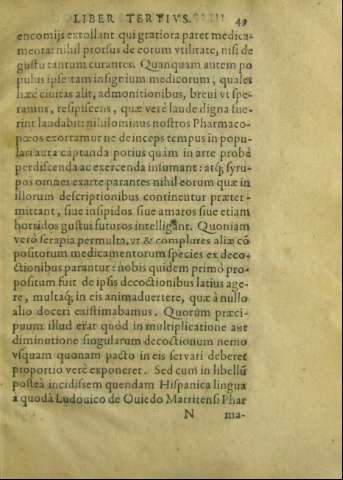 LIBER TERTIVS. 49
encomijs extollant qui gratiora paret medica-
menta: nihil prorsus de eorum vtilitate, nisi de
gustu tantum curantes. Quanquam autem po
pulus ipse tam insignium medicorum, quales
hæc ciuitas alit, admonitionibus, breui vt spe-
ramus, resipiscens, quæ verè laude digna fue-
rint laudabit: nihilominus nostros Pharmaco-
pœos exortamur ne deinceps tempus in popu-
lari aura captanda potius quàm in arte probè
perdiscenda ac exercenda insumant: atq; syru-
pos omnes ex arte parantes nihil eorum quæ in
illorum descriptionibus continentur præter-
mittant, siue insipidos siue amaros siue etiam
horridos gustui futuros intelligant. Quoniam
verò serapia permulta, vt & complures aliæ cō
positorum medicamentorum species ex deco-
ctionibus parantur: nobis quidem primò pro-
positum fuit de ipsis decoctionibus latius age-
re, multaq; in eis animaduertere, quæ à nullo
alio doceri existimabamus. Quorùm præci-
puum illud erat quòd in multiplicatione aut
diminutione singularum decoctionum nemo
vsquam quonam pacto in eis seruari deberet
proportio verè exponeret. Sed cum in libellū
posteà incidissem quendam Hispanica lingua
à quodā Ludouico de Ouiedo Matritensi Phar
N ma-